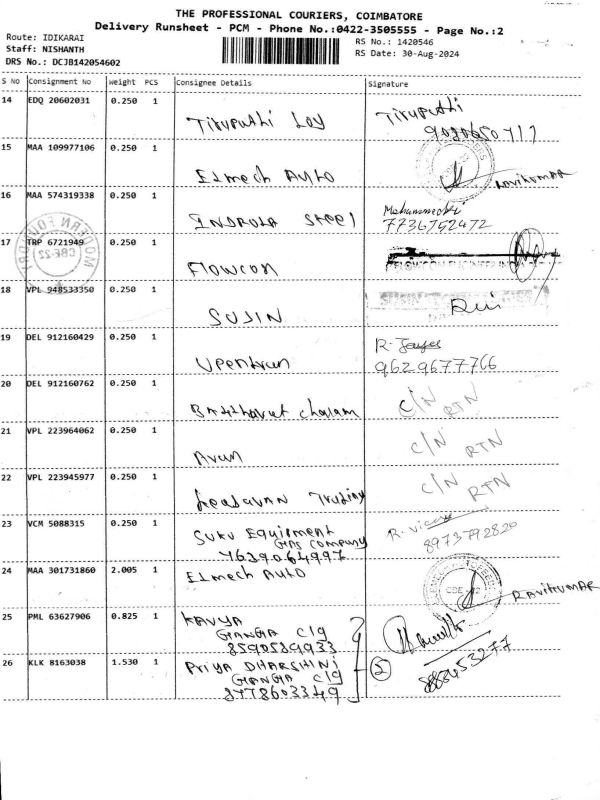 THE PROFESSIONAL COURIERS, COIMBATORE
Delivery Runsheet - PCM - Phone No.:0422-3505555 - Page No.:2
Route: IDIKARAI
Staff: NISHANTH
DRS No.: DCJB142054602
RS No.: 1420546
RS Date: 30-Aug-2024
S No Consignment No Weight PCS Consignee Details Signature
14 EDQ 20602031 0.250 1
Tirupathi Loy Tirupathi
15 MAA 109977106 0.250 1
Elmech Auto RAVIKUMAR
16 MAA 574319338 0.250 1
INDROLA Steel
7736752472
17 TRP 6721949 0.250 1
CBE-22
Flowcon
18 VPL 948533350 0.250 1
SUJIN
19 DEL 912160429 0.250 1
R. 
9629677766
20 DEL 912160762 0.250 1
Chalam C/N RTN
21 VPL 223964062 0.250 1
Arun C/N RTN
22 VPL 223945977 0.250 1
C/N RTN
23 VCM 5088315 0.250 1
SUKU Equipment
GAS Company
7639064997
8973792820
24 MAA 301731860 2.005 1
Elmech Auto RAVIKUMAR
25 PML 63627906 0.825 1
KAVYA
GANGA clg
8590539933
26 KLK 8163038 1.530 1
Priya DHARSHINI
GANGA clg
8778603349
5
8883453277